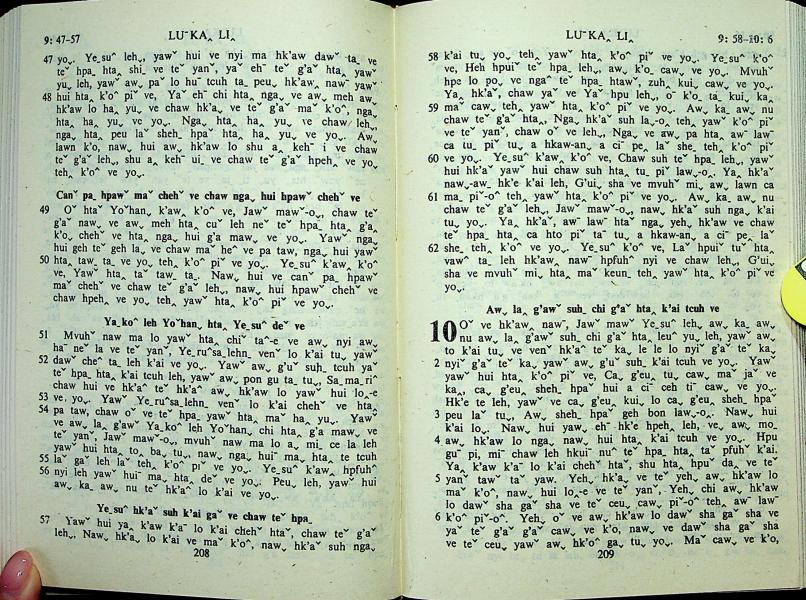 9: 47-57 LUˉ KA‸ LI‸
47 yo˯. Ye‸suˆ leh˯, yawˇ hui ve nyi ma hk'aw dawˇ ta‸ ve
teˇ hpa‸ hta‸ shi˯ ve teˇ yanˇ, ya˯ ehˇ teˇ g'aˇ hta‸ yawˇ
yu˯ leh, yawˇ aw˯ paˇ lo huˉ tcuh ta‸ peu˯ hk'a˯ nawˉ yawˇ
48 hui hta‸ k'oˆ piˇ ve, Yaˇ ehˉ chi hta‸ nga˯ ve aw˯ meh aw˯
hk'aw lo ha˯ yu˯ ve chaw hk'a˯ ve teˇ g'aˇ maˇ k'oˆ, nga˯
hta‸ ha˯ yu˯ ve yo˯. Nga˯ hta‸ ha˯ yu˯ ve chaw leh˯,
nga˯ hta‸ peu la˯ sheh‸ hpaˇ hta‸ ha˯ yu˯ ve yo˯. Aw˯
lawn k'o˯ nawˇ hui aw˯ hk'aw lo shu a˯ kehˉ i ve chaw
teˇ g'aˇ leh˯, shu a˯ kehˉ ui‸ ve chaw teˇ g'aˇ hpeh˯ ve yo˯
teh˯ k'oˆ ve yo˯.
Canˇ pa‸ hpawˇ maˇ chehˇ ve chaw nga˯ hui hpawˇ chehˇ ve
49 Oˇ htaˇ Yoˇhan˯ k'aw˯ k'oˆ ve, Jawˇ mawˇ-o˯, chaw teˇ
g'aˇ naw˯ ve aw˯ meh hta‸ cuˇ leh neˇ teˇ hpa‸ hta‸ g'a˯
ko˯ chehˇ ve hta‸ nga˯ hui g'a maw˯ ve yo˯. Yawˇ nga˯
hui geh teˇ geh la˯ ve chaw maˇ heˆ ve pa taw˯ nga˯ hui yawˇ
50 hta‸ taw‸ ta‸ ve yo˯ teh˯ k'oˆ piˇ ve yo˯. Ye‸suˆ k'aw˯ k'oˆ
ve, Yawˇ hta‸ taˇ taw‸ ta‸. Nawˇ hui ve canˇ pa‸ hpawˇ
maˇ chehˇ ve chaw teˇ g'aˇ leh˯, nawˇ hui hpawˇ chehˇ ve
chaw hpeh˯ ve yo˯ teh˯ yawˇ hta‸ k'oˆ piˇ ve yo˯.
Ya‸koˆ leh Yoˇhan˯ hta‸ Ye‸suˆ deˇ ve
51 Mvuhˇ naw ma lo yawˇ hta‸ chiˇ taˉ-e ve aw˯ nyi aw˯
haˉ neˇ la ve teˇ yanˇ, Ye‸ruˆsa‸lehn‸ venˇ lo k'ai tu˯ yawˇ
52 daw˯ cheˆ ta‸ leh k'ai ve yo˯. Yawˇ aw˯ g'uˇ suh‸ tcuh yaˇ
teˇ hpa‸ hta‸ k'ai tcuh leh, yawˇ aw˯ pon gu ta‸ tu˯, Sa‸ma‸riˆ
chaw hui ve hk'aˇ teˇ hk'aˇ aw˯ hk'aw lo yawˇ hui lo‸-e
53 ve‸ yo˯. Yawˇ Ye‸ruˆsa‸lehn‸ venˇ lo k'ai chehˇ ve hta‸
54 pa taw˯ chaw oˇ ve teˇ hpa‸ yawˇ hta‸ maˇ ha˯ yu˯. Yawˇ
ve aw˯ la˯ g'awˇ Ya‸koˆ leh Yoˇhan˯ chi hta‸ g'a maw˯ ve
teˇ yanˇ, Jawˇ mawˇ-o˯, mvuhˇ nawˇ ma lo a˯ mi‸ ce la leh
yawˇ hui hta‸ to‸ ba˯ tu˯, naw˯ nga˯ huiˉ ma‸ hta‸ te tcuh
55 laˇ gaˇ leh laˇ teh˯ k'oˆ piˇ ve yo˯. Ye‸suˆ k'aw˯ hpfuhˆ
56 nyi leh yawˇ huiˉ ma‸ hta‸ deˇ ve yo˯. Peu˯ leh, yawˇ hui
aw˯ ka‸ aw˯ nu teˇ hk'aˆ lo k'ai ve yo˯.
Ye‸suˆ hk'aˇ suh k'ai gaˇ ve chaw teˇ hpa‸
57 Yawˇ hui ya˯ k'aw k'aˉ lo k'ai chehˇ htaˇ, chaw teˇ g'aˇ
leh˯, Naw˯ hk'a˯ lo k'ai ve maˇ k'oˆ, naw˯ hk'aˇ suh nga˯
208
LUˉ KA‸ LI‸ 9: 58-10: 6
58 k'ai tu˯ yo˯ teh˯ yawˇ hta‸ k'oˆ piˇ ve yo˯. Ye‸suˆ k'oˆ
ve, Heh hpuiˇ teˇ hpa‸ leh˯, aw˯ k'o˯ caw˯ ve yo˯. Mvuhˇ
hpe lo po˯ ve ngaˆ teˇ hpa‸ htawˇ, zuh˯ kui˯ caw˯ ve yo˯.
Ya˯ hk'aˇ, chaw yaˇ ve Yaˇ hpu leh˯, oˇ k'o‸ ta‸ kui˯ ka˯
59 maˇ caw˯ teh˯ yawˇ hta‸ k'oˆ piˇ ve yo˯. Aw˯ ka‸ aw˯ nu
chaw teˇ g'aˇ hta‸, Nga˯ hk'aˇ suh la˯-o˯ teh˯ yawˇ k'oˆ piˇ
ve teˇ yanˇ, chaw oˇ ve leh˯, Nga˯ ve aw˯ pa hta‸ awˉ lawˇ
ca tu˯ piˇ tu˯ a hkaw-an˯ a ciˉ pe‸ laˇ she‸ teh˯ k'oˆ piˇ
60 ve yo˯. Ye‸suˆ k'aw˯ k'oˆ ve, Chaw suh teˇ hpa‸ leh˯, yawˇ
hui hk'aˇ yawˇ hui chaw suh hta‸ tu‸ piˇ law˯-o˯. Ya˯ hk'aˇ
naw˯-aw‸ hk'e k'ai leh, G'ui˯ sha ve mvuhˇ mi‸ aw˯ lawn ca
61 ma‸ piˇ-oˆ teh˯ yawˇ hta‸ k'oˆ piˇ ve yo˯. Aw˯ ka‸ aw˯ nu
chaw teˇ g'aˇ leh˯, Jawˇ mawˇ-o˯, naw˯ hk'aˇ suh nga˯ k'ai
tu˯ yo˯. Ya˯ hk'aˇ, awˉ lawˇ hta‸ nga˯ yeh˯ hk'aw ve chaw
teˇ hpa‸ hta‸ ca hto piˇ taˇ tu˯ a hkaw-an˯ a ciˉ pe‸ laˇ
62 she‸ teh˯ k'oˆ ve yo˯. Ye‸suˆ k'oˆ ve, Laˇ hpuiˇ tuˉ hta‸
vawˇ ta‸ leh hk'aw˯ nawˇ hpfuhˆ nyi ve chaw leh˯, G'ui˯
sha ve mvuhˇ mi‸ hta‸ maˇ keun˯ teh˯ yawˇ hta‸ k'oˆ piˇ ve
yo˯.
Aw˯ la˯ g'awˇ suh‸ chi g'aˇ hta‸ k'ai tcuh ve
10 Oˇ ve hk'aw˯ nawˉ, Jawˇ mawˇ Ye‸suˆ leh˯, aw˯ ka‸ aw˯
nu aw˯ la˯ g'awˇ suh‸ chi g'aˇ hta‸ leuˇ yu˯ leh, yawˇ aw˯
to k'ai tu˯ ve venˇ hk'aˆ teˇ ka˯ le le lo nyiˇ g'aˇ teˇ ka˯
2 nyiˇ g'aˇ teˇ ka˯ yawˇ aw˯ g'uˇ suh‸ k'ai tcuh ve yo˯. Yawˇ
yawˇ hui hta‸ k'oˆ piˇ ve, Ca˯ g'eu˯ tu˯ caw˯ maˇ jaˇ ve
ka˯, ca˯ g'eu˯ sheh‸ hpaˇ hui a ciˉ ceh tiˉ caw˯ ve yo˯.
Hk'e te leh, yawˇ ve ca˯ g'eu˯ kui˯ lo ca˯ g'eu˯ sheh‸ hpaˇ
3 peu laˇ tu˯, Aw˯ sheh‸ hpaˇ geh bon law˯-o˯. Naw˯ hui
k'ai lo˯. Nawˇ hui yawˇ ehˉ hk'e hpeh˯ leh, ve˯ aw˯ mo‸
4 aw˯ hk'aw lo nga˯ nawˇ hui hta‸ k'ai tcuh ve yo˯. Hpu
guˉ pi˯ miˉ chaw leh hkuiˉ nuˆ teˇ hpa‸ htaˇ taˇ pfuhˇ k'ai.
Ya˯ k'aw k'aˉ lo k'ai chehˇ htaˇ, shu hta‸ hpuˇ da˯ ve teˇ
5 yanˇ tawˇ taˇ yaw˯. Yeh˯ hk'a˯ ve teˇ yeh˯ aw˯ hk'aw lo
maˇ k'oˆ, naw˯ hui lo‸-e ve teˇ yanˇ, Yeh˯ chi aw˯ hk'aw
lo dawˇ sha gaˇ sha ve teˇ ceu˯ caw˯ piˇ-oˆ teh˯ awˉ lawˇ
6 k'oˆ piˇ-oˆ. Yeh˯ oˇ ve aw˯ hk'aw lo dawˇ sha gaˇ sha ve
yaˇ teˇ g'aˇ g'aˇ caw˯ ve k'o˯ naw˯ ve dawˇ sha gaˇ sha
ve teˇ ceu˯ yawˇ aw˯ hk'oˆ ga˯ tu˯ yo˯. Maˇ caw˯ ve k'o˯
209